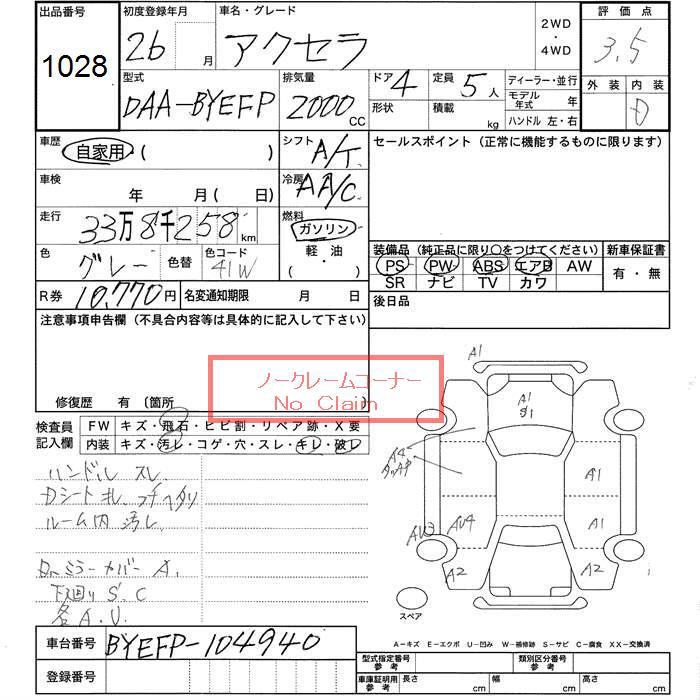 出品番号
1028
初度登録年月
26 月
車名・グレード
アクセラ
2WD
・
4WD
評価点
3.5
外装 内装
D
型式
DAA-BYEFP
排気量
2000 CC
ドア 4
形状
定員 5 人
積載 kg
ディーラー・並行
モデル年式 年
ハンドル 左・右
車歴
自家用・( )
シフト A/T
セールスポイント (正常に機能するものに限ります)
車検
年 月 ( 日)
冷房 AA/C
走行
33万8千258 km
燃料
ガソリン
軽・油
( ・ )
色 グレー
色替
色コード 41W
装備品 (純正品に限り○をつけてください)
PS PW ABS エアB AW
SR ナビ TV カワ
新車保証書
有・無
R券 10,770円
名変通知期限 月 日
後日品
注意事項申告欄 (不具合内容等は具体的に記入して下さい)
ノークレームコーナー
No Claim
修復歴 有 〔箇所
検査員
記入欄
FW キズ・飛石・ヒビ割・リペア跡・X要
内装 キズ・汚レ・コゲ・穴・スレ・キレ・破レ
ハンドル スレ
Dシート キレ フチヘタリ
ルーム内 汚レ
ミラーカバー A.
下廻り S.C
各A.U.
A1
A1
S1
A4
A1
A1
AU3
AU4
A2
A2
スペア
車台番号 BYEFP-104940
登録番号
A－キズ E－エクボ U－凹み W－補修跡 S－サビ C－腐食 XX－交換済
型式指定番号
参考
類別区分番号
参考
車庫証明用
参考
長さ cm 幅 cm 高さ cm